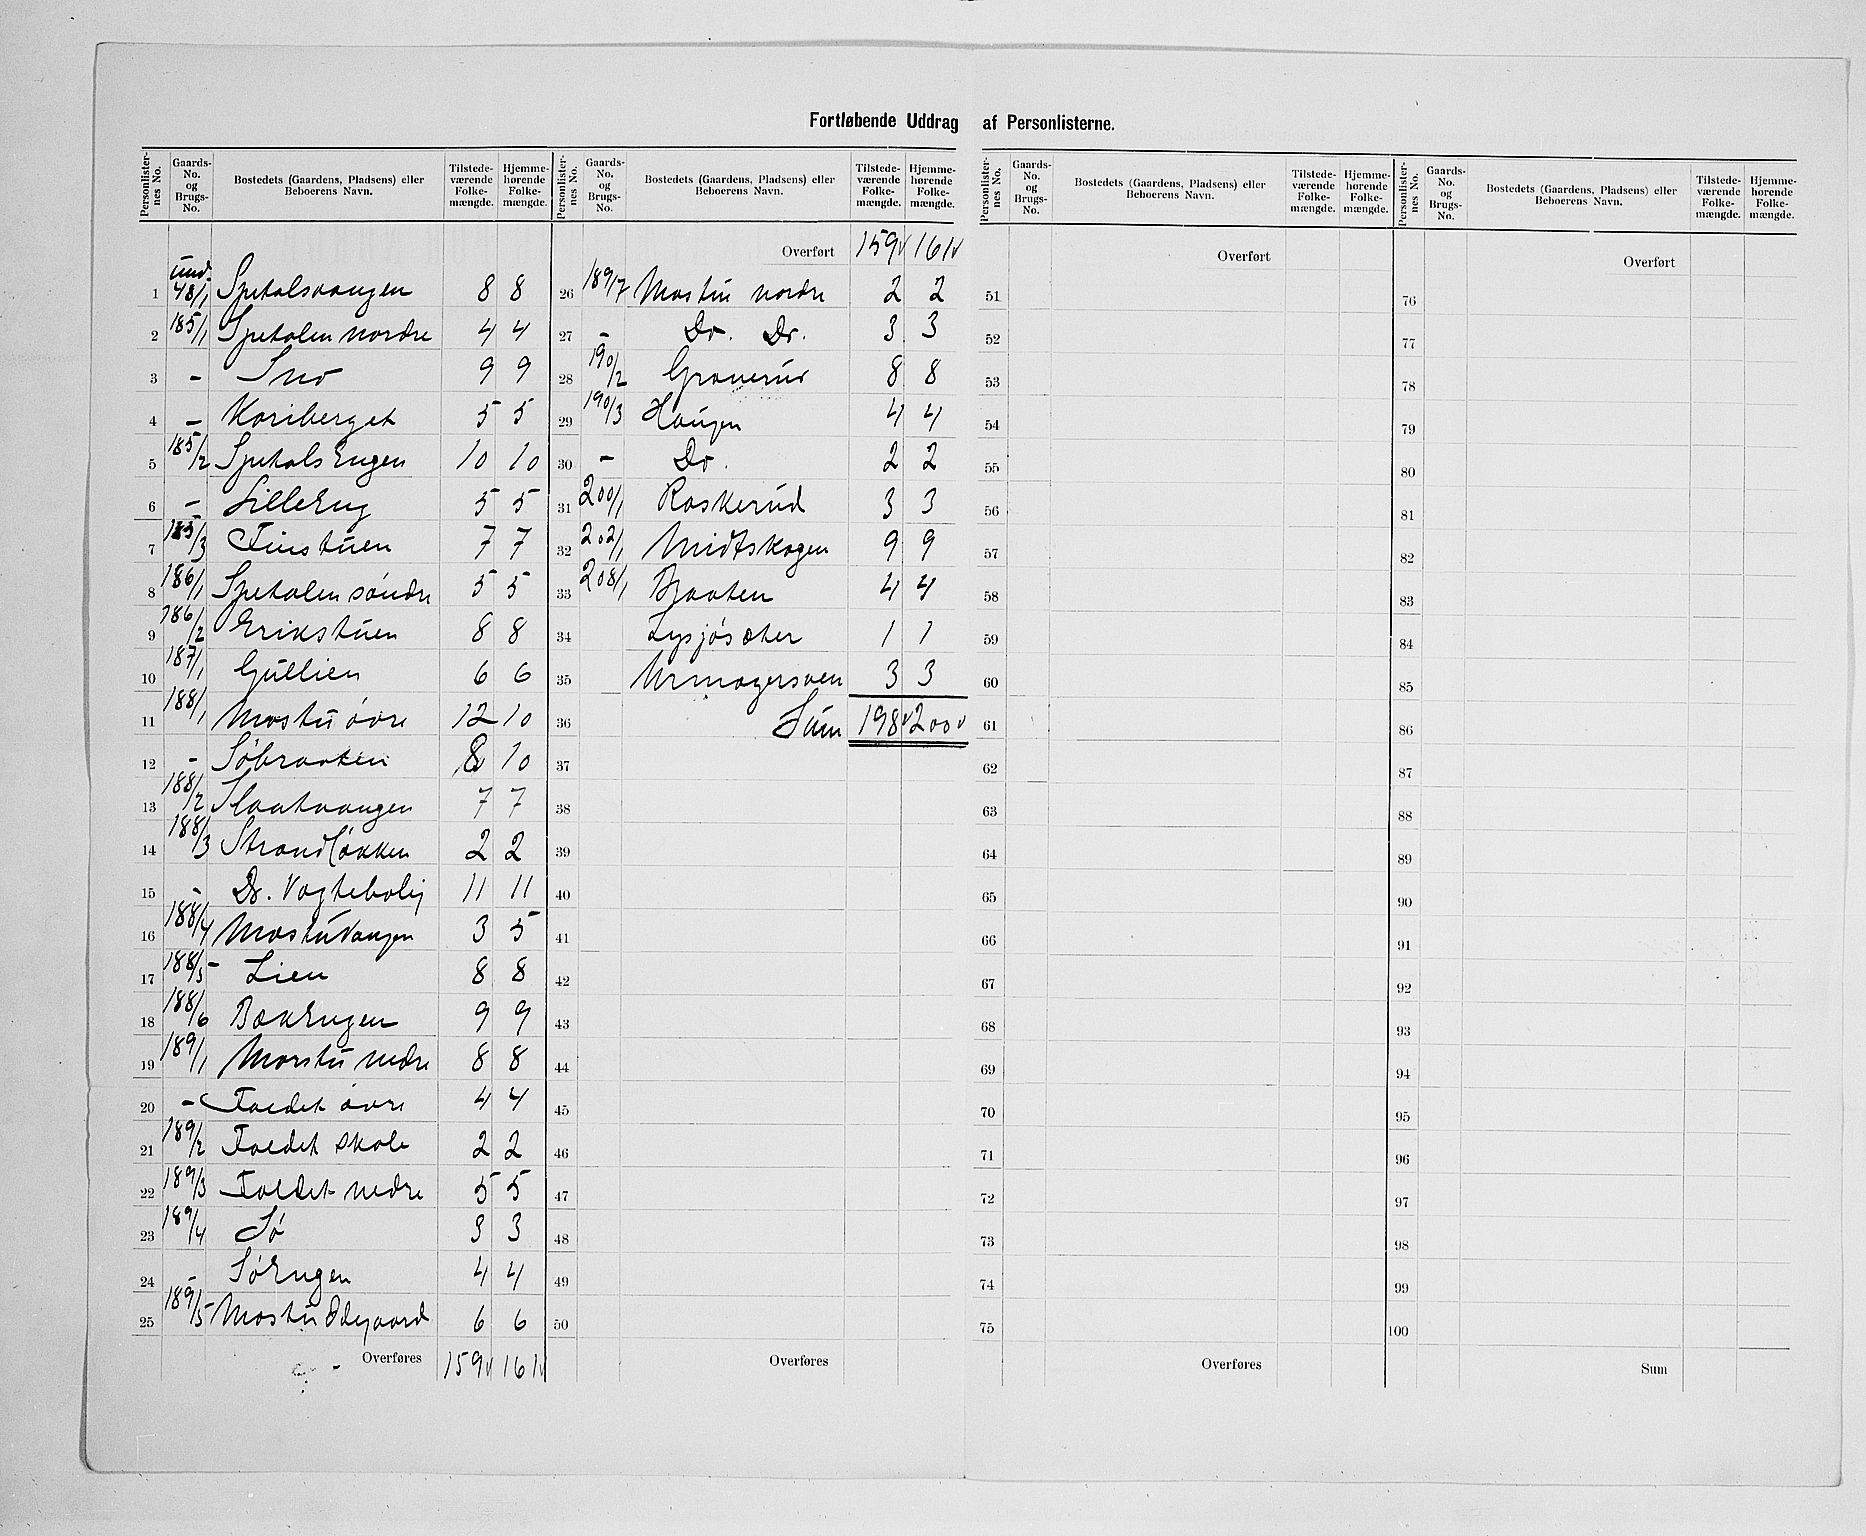 Fortløbende Uddrag af Personlisternе.
Personlister-nes No. | Gaards-No. og Brugs-No. | Bostedets (Gaardens, Pladsens) eller Beboerens Navn. | Tilstede-værende Folke-mængde. | Hjemme-hørende Folke-mængde.
1 | und. 48/1 | Spetalsvangen | 8 | 8
2 | 185/1 | Spetalen nordre | 4 | 4
3 | - | Sno | 9 | 9
4 | - | Kariberget | 5 | 5
5 | 185/2 | SpetalsEngen | 10 | 10
6 | - | LilleEng | 5 | 5
7 | 185/3 | Finstuen | 7 | 7
8 | 186/1 | Spetalen søndre | 5 | 5
9 | 186/2 | Erikstuen | 8 | 8
10 | 187/1 | Gullien | 6 | 6
11 | 188/1 | Mostu øvre | 12 | 10
12 | - | Søbraaten | 8 | 10
13 | 188/2 | Slaatvangen | 7 | 7
14 | 188/3 | Strandløkken | 2 | 2
15 | - | Do. Vogtebolig | 11 | 11
16 | 188/4 | MostuVangen | 3 | 5
17 | 188/5 | Lien | 8 | 8
18 | 188/6 | BækEngen | 9 | 9
19 | 189/1 | Morstu nedre | 8 | 8
20 | - | Faldet øvre | 4 | 4
21 | 189/2 | Faldet skole | 2 | 2
22 | 189/3 | Faldet nedre | 5 | 5
23 | 189/4 | Sø | 3 | 3
24 | - | SøEngen | 4 | 4
25 | 189/5 | Mostu Ødegaard | 6 | 6
Overføres | 159 | 161
Personlister-nes No. | Gaards-No. og Brugs-No. | Bostedets (Gaardens, Pladsens) eller Beboerens Navn. | Tilstede-værende Folke-mængde. | Hjemme-hørende Folke-mængde.
Overført | 159 | 161
26 | 189/7 | Mostu nordre | 2 | 2
27 | - | Do. Do. | 3 | 3
28 | 190/2 | Graverud | 8 | 8
29 | 190/3 | Haugen | 4 | 4
30 | - | Do. | 2 | 2
31 | 200/1 | Raskerud | 3 | 3
32 | 202/1 | Midtskogen | 9 | 9
33 | 208/1 | Braaten | 4 | 4
34 | Lysjøsæter | 1 | 1
35 | Urmagersven | 3 | 3
36 | Sum | 198 | 200
37
38
39
40
41
42
43
44
45
46
47
48
49
50
Overføres
Personlister-nes No. | Gaards-No. og Brugs-No. | Bostedets (Gaardens, Pladsens) eller Beboerens Navn. | Tilstede-værende Folke-mængde. | Hjemme-hørende Folke-mængde.
Overført
51
52
53
54
55
56
57
58
59
60
61
62
63
64
65
66
67
68
69
70
71
72
73
74
75
Overføres
Personlister-nes No. | Gaards-No. og Brugs-No. | Bostedets (Gaardens, Pladsens) eller Beboerens Navn. | Tilstede-værende Folke-mængde. | Hjemme-hørende Folke-mængde.
Overført
76
77
78
79
80
81
82
83
84
85
86
87
88
89
90
91
92
93
94
95
96
97
98
99
100
Sum